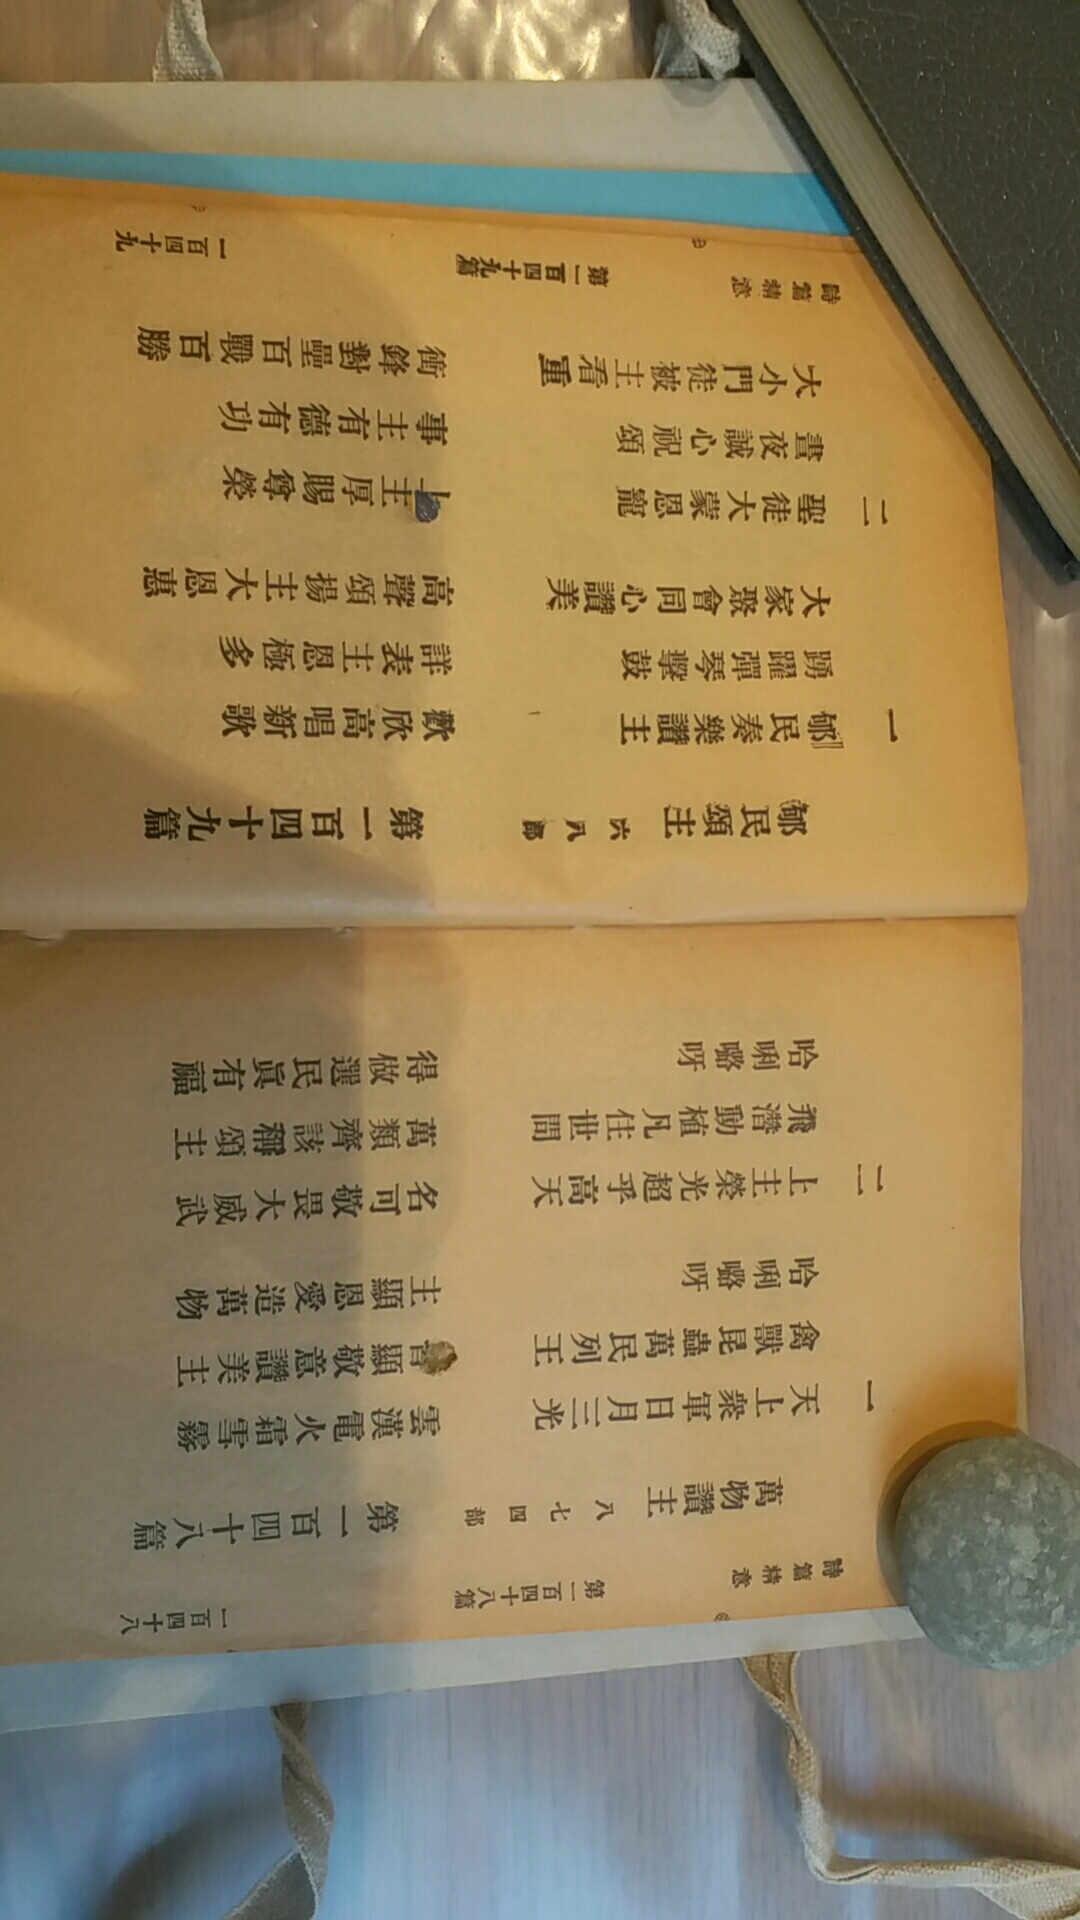 詩篇精意 第一百四十八篇 一百四十八
萬物讚主 八七四部 第一百四十八篇
一 天上衆軍日月三光 雲漢電火霜雪霧
禽獸昆蟲萬民列王 皆顯敬意讚美主
哈唎嚕呀 主顯恩愛造萬物
二 上主榮光超乎高天 名可敬畏大威武
飛潛動植凡住世間 萬類齊該稱頌主
哈唎嚕呀 得做選民眞有福
郇民頌主 六八部 第一百四十九篇
一 郇民奏樂讚主 歡欣高唱新歌
踴躍彈琴擊鼓 詳表主恩極多
大家聚會同心讚美 高聲頌揚主大恩惠
二 聖徒大蒙恩寵 上主厚賜尊榮
晝夜誠心祝頌 事主有德有功
大小門徒被主看重 衝鋒對壘百戰百勝
詩篇精意 第一百四十九篇 一百四十九